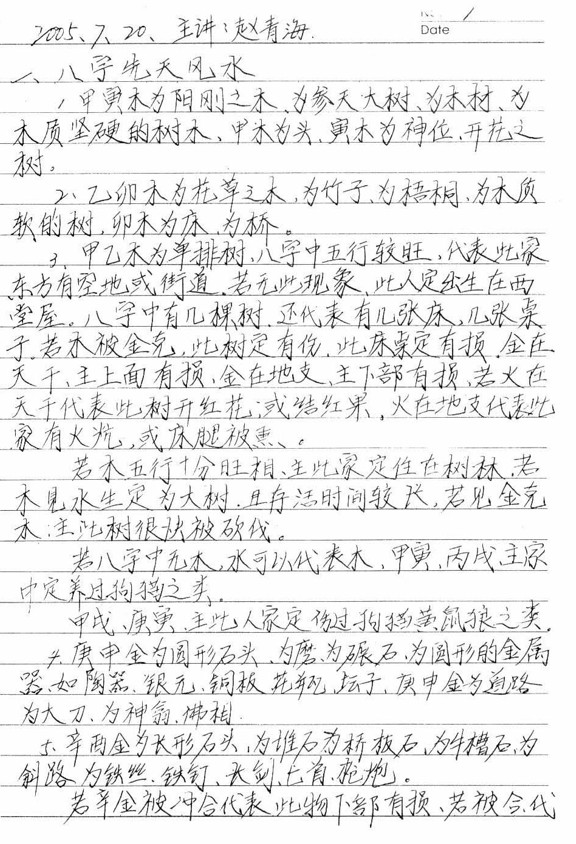 No. 1
Date
2005、7、20、主讲:赵青海.
一、八字先天风水
1、甲寅木为阳刚之木、为参天大树、为木材、为
木质坚硬的树木、甲木为头、寅木为神位、开花之
树。
2、乙卯木为花草之木、为竹子、为梧桐、为木质
软的树,卯木为床、为桥。
3、甲乙木为单排树、八字中五行较旺、代表此家
东方有空地或街道、若无此现象、此人定出生在西
堂屋。八字中有几棵树、还代表有几张床、几张桌
子.若木被金克、此树定有伤、此床桌定有损、金在
天干、主上面有损、金在地支、主下部有损、若火在
天干代表此树开红花、或结红果、火在地支代表此
家有火炕、或床腿被熏、。
若木五行十分旺相、主此家定住在树林、若
木见水生定为大树、且存活时间较长、若见金克
木、主此树很快被砍伐。
若八字中无木、水可以代表木、甲寅、丙戌、主家
中定养过狗猫之类.
甲戌、庚寅、主此人家定伤过狗猫黄鼠狼之类.
4、庚申金为圆形石头、为磨、为碾石、为圆形的金属
器、如陶器、银元、铜板、花瓶、坛子、庚申金为道路
为大刀、为神翁、佛相.
5、辛酉金为长形石头、为堆石为桥板石、为牛槽石、为
斜路、为铁丝、铁钉、长剑、匕首、枪炮。
若辛金被冲合代表此物下部有损、若被合、代